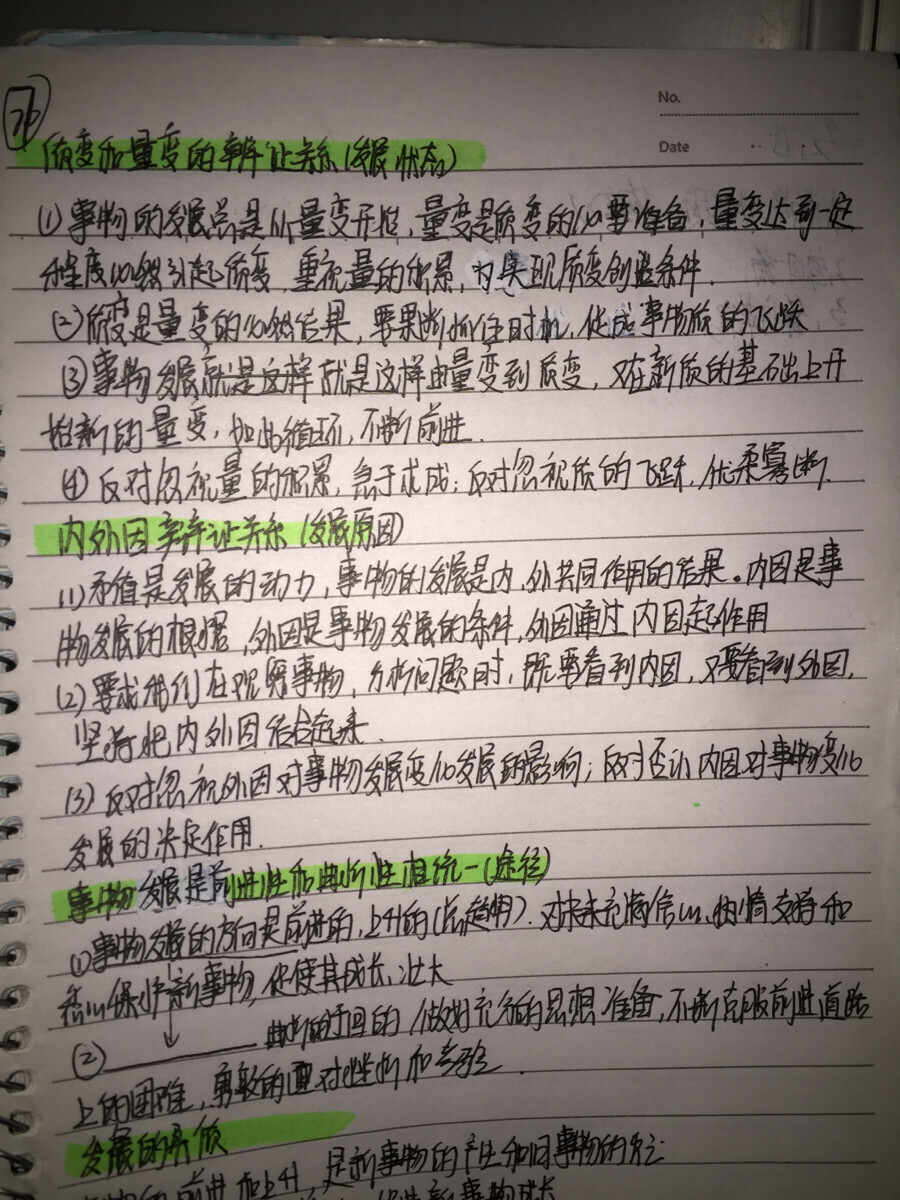 No.
Date
质变和量变的辨证关系(发展状态)
(1)事物的发展总是从量变开始,量变是质变的必要准备,量变达到一定
程度必然引起质变,重视量的积累,为实现质变创造条件.
(2)质变是量变的必然结果,要果断抓住时机,促成事物质的飞跃
(3)事物发展就是这样就是这样由量变到质变,又在新质的基础上开
始新的量变,如此循环,不断前进.
(4)反对忽视量的积累,急于求成;反对忽视质的飞跃,优柔寡断.
内外因辩证关系(发展原因)
(1)矛盾是发展的动力,事物的发展是内、外共同作用的结果。内因是事
物发展的根据,外因是事物发展的条件,外因通过内因起作用
(2)要求我们在观察事物,分析问题时,既要看到内因,又要看到外因,
坚持把内外因结合起来.
(3)反对忽视外因对事物发展变化发展的影响;反对否认内因对事物变化
发展的决定作用.
事物发展是前进性和曲折性相统一(途径)
①事物发展的方向是前进的,上升的(总趋势).对未来充满信心,热情支持和
悉心保护新事物,促使其成长、壮大
② 曲折的迂回的 做好充分的思想准备,不断克服前进道路
上的困难,勇敢的面对挫折和考验.
发展的实质
的前进和上升,是新事物的产生和旧事物的
新事物成长